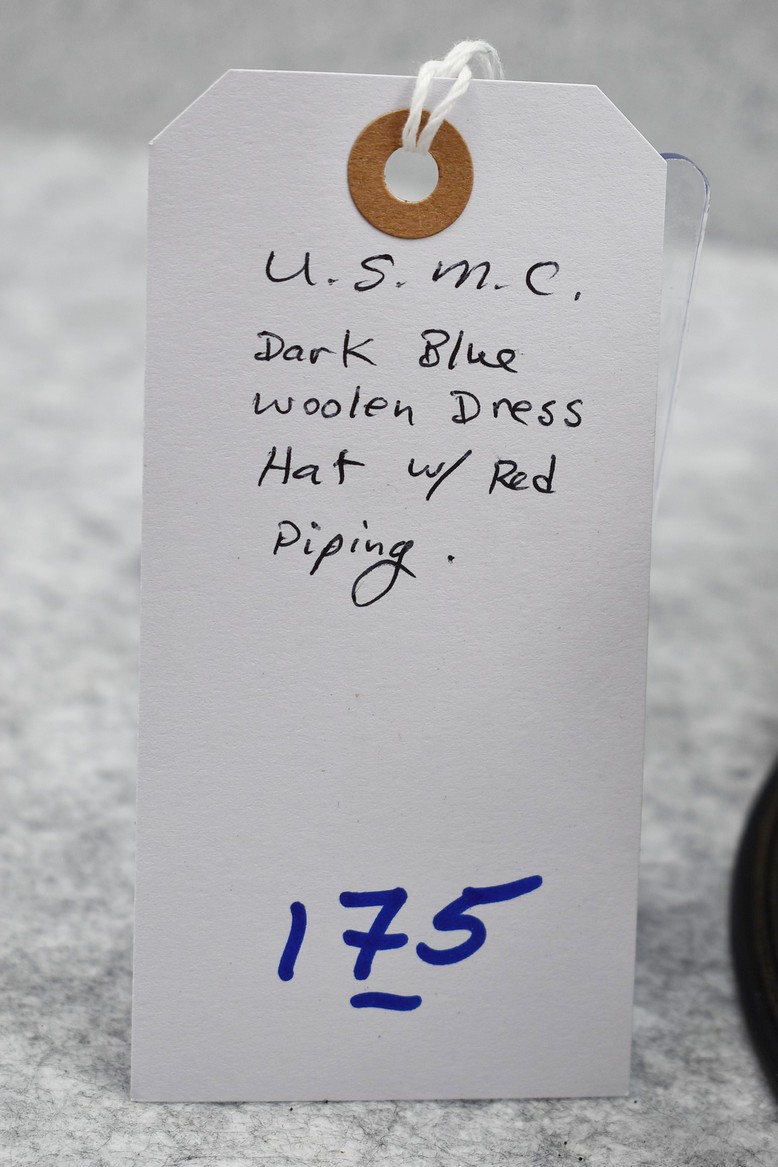 U.S.M.C.
Dark Blue
Woolen Dress
Hat w/ Red
Piping.
175